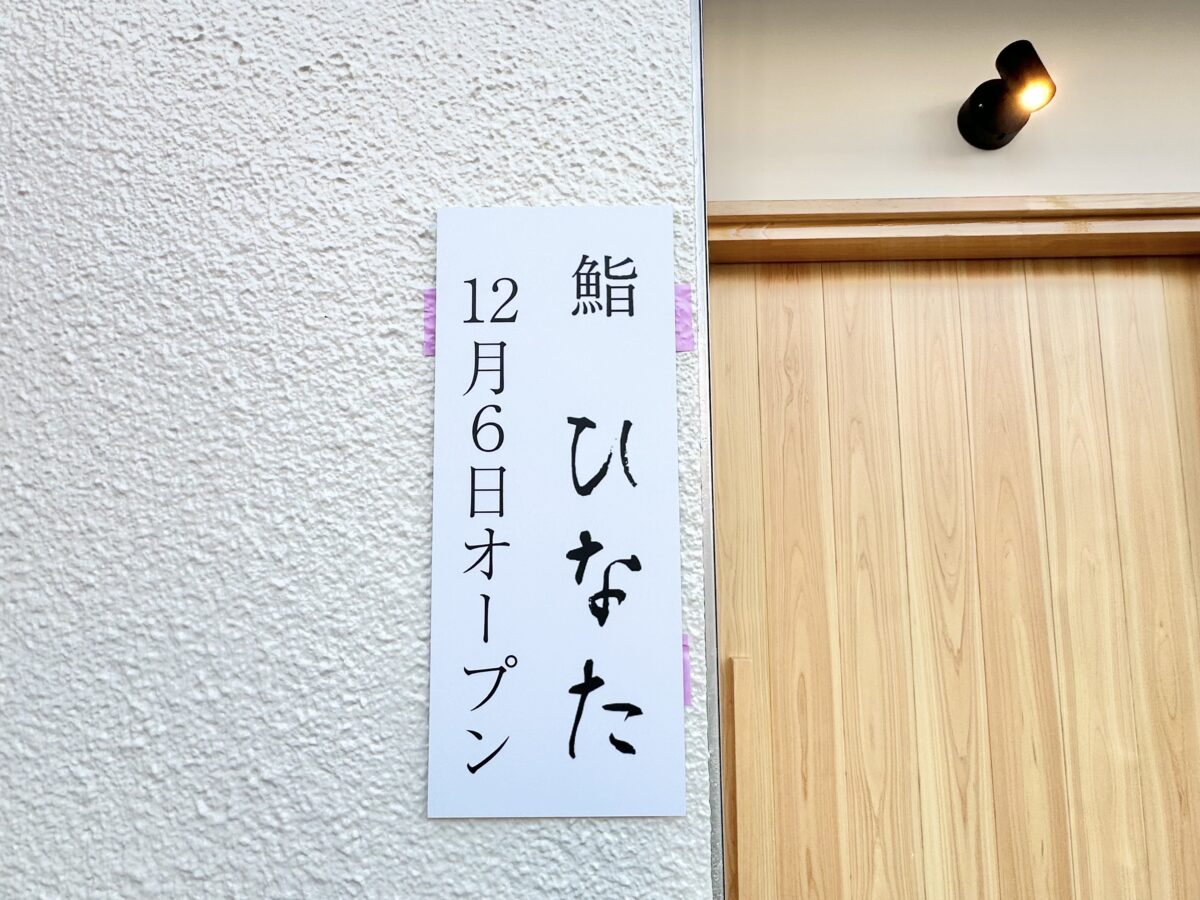 鮨 ひなた
12月6日オープン